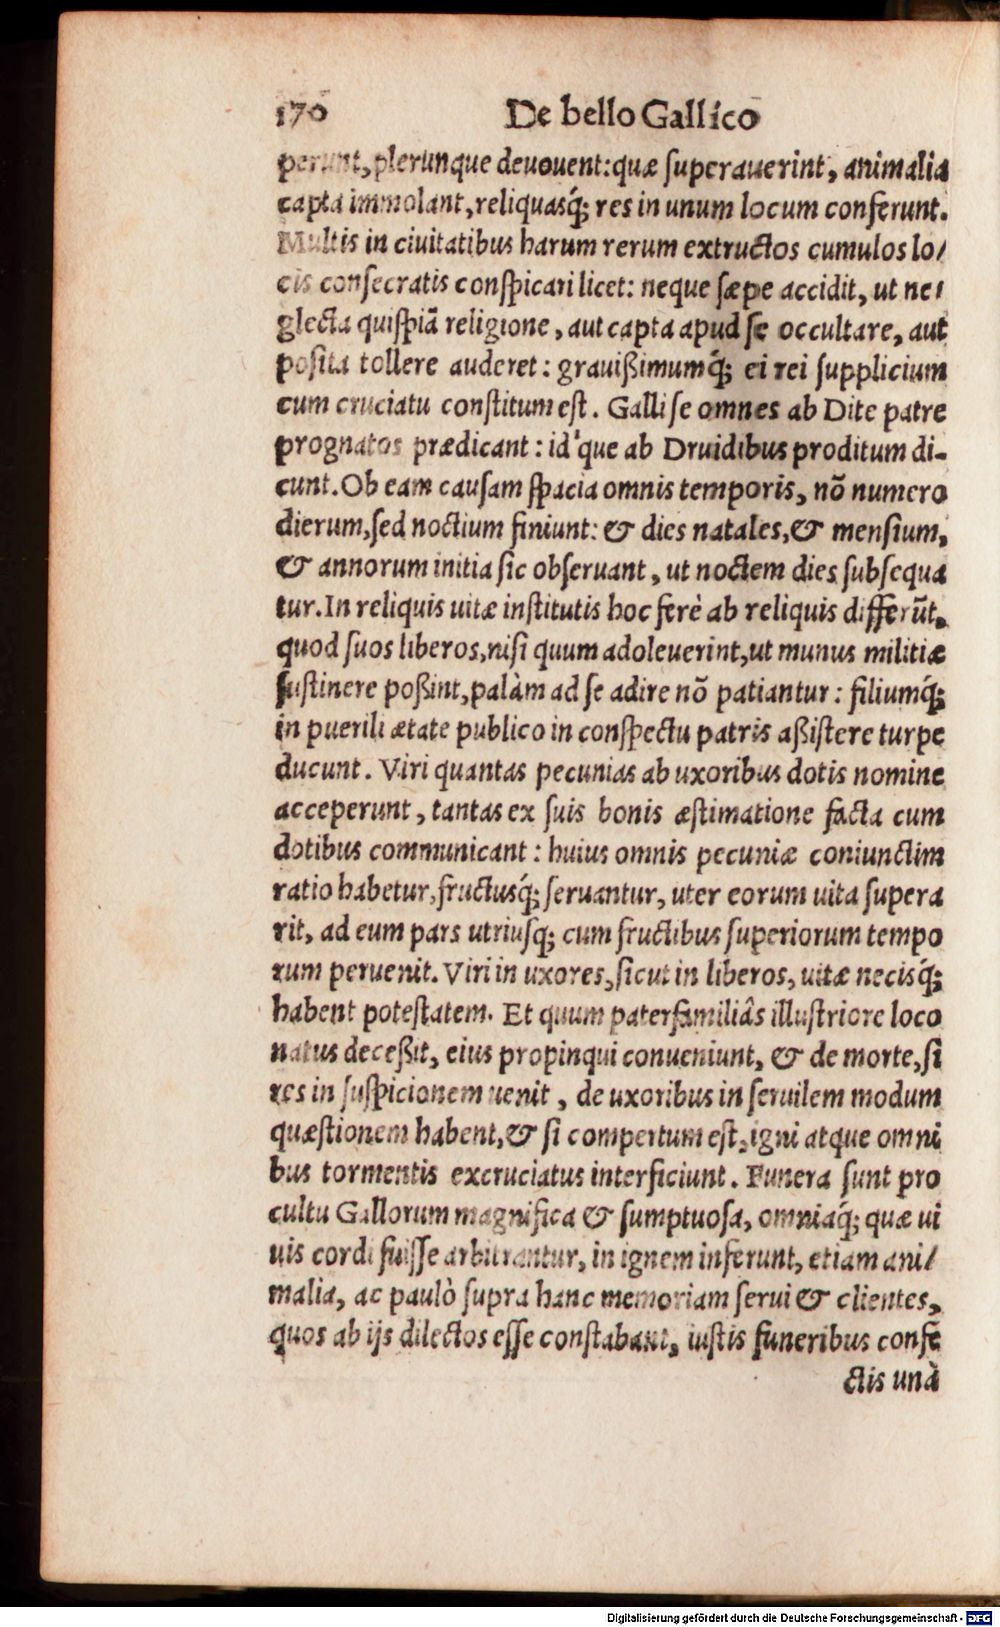 170 De bello Gallico
perunt, plerunque deuouent: quæ ſuperauerint, animalia
capta immolant, reliquasq́; res in unum locum conferunt.
Multis in ciuitatibus harum rerum extructos cumulos lo/
cis conſecratis conſpicari licet: neque ſæpe accidit, ut ne/
glecta quiſpiã religione, aut capta apud ſe occultare, aut
poſita tollere auderet: grauißimumq́; ei rei ſupplicium
cum cruciatu conſtitum eſt. Galli ſe omnes ab Dite patre
prognatos prædicant: id'que ab Druidibus proditum di-
cunt. Ob eam cauſam ſpacia omnis temporis, nõ numero
dierum, ſed noctium finiunt: & dies natales, & menſium,
& annorum initia ſic obſeruant, ut noctem dies ſubſequa
tur. In reliquis uitæ inſtitutis hoc ferè ab reliquis differũt,
quod ſuos liberos, niſi quum adoleuerint, ut munus militiæ
ſuſtinere poßint, palàm ad ſe adire nõ patiantur: filiumq́;
in puerili ætate publico in conſpectu patris aßiſtere turpe
ducunt. Viri quantas pecunias ab uxoribus dotis nomine
acceperunt, tantas ex ſuis bonis æſtimatione facta cum
dotibus communicant: huius omnis pecuniæ coniunctim
ratio habetur, fructusq́; ſeruantur, uter eorum uita ſupera
rit, ad eum pars utriuſq; cum fructibus ſuperiorum tempo
rum peruenit. Viri in uxores, ſicut in liberos, uitæ necisq́;
habent poteſtatem. Et quum paterfamiliâs illuſtriore loco
natus deceßit, eius propinqui conueniunt, & de morte, ſi
res in ſuſpicionem uenit, de uxoribus in ſeruilem modum
quæſtionem habent, & ſi compertum eſt, igni atque omni
bus tormentis excruciatus interficiunt. Funera ſunt pro
cultu Gallorum magnifica & ſumptuoſa, omniaq́; quæ ui
uis cordi fuiſſe arbitrantur, in ignem inferunt, etiam ani/
malia, ac paulò ſupra hanc memoriam ſerui & clientes,
quos ab ijs dilectos eſſe conſtabant, iuſtis funeribus confe
ctis unà
Digitalisierung gefördert durch die Deutsche Forschungsgemeinschaft - DFG